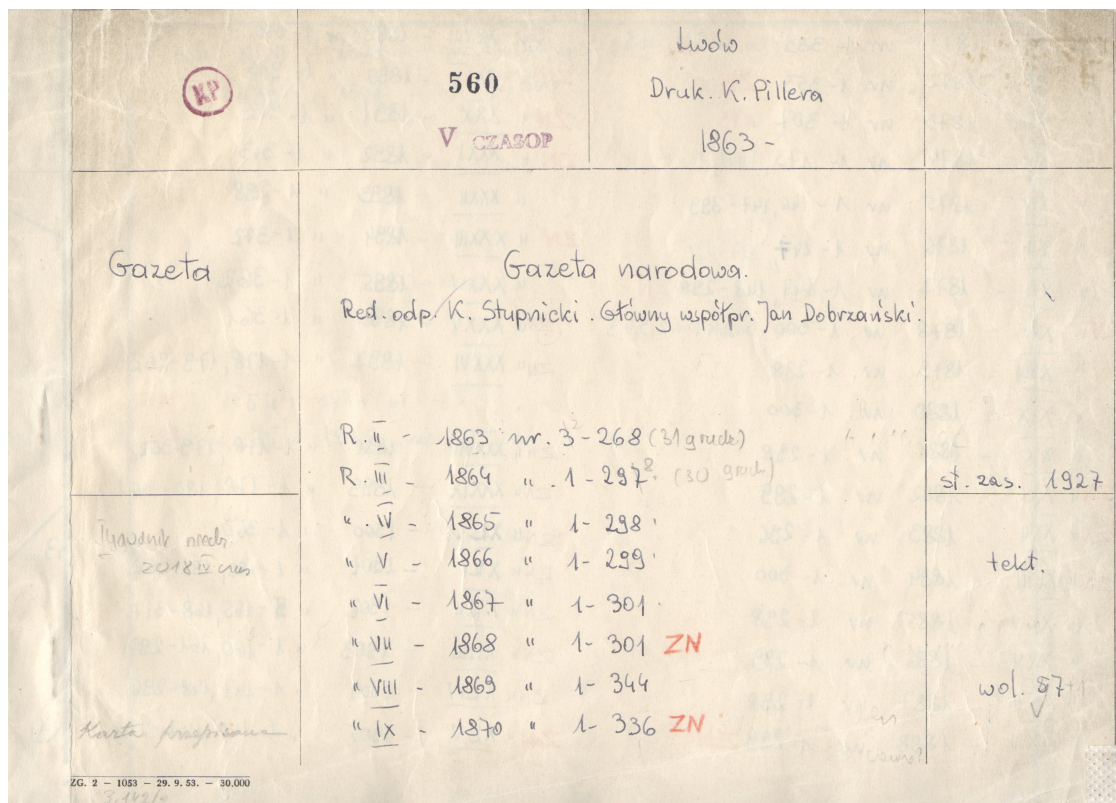 KP
560
V CZASOP
Lwów
Druk. K. Pillera
1863 -
Gazeta
Gazeta narodowa.
Red. odp. K. Stupnicki. Główny współpr. Jan Dobrzański.
R. II - 1863 nr. 3-268 (31 grudz)
R. III - 1864 ". 1-297 (30 grudz)
". IV - 1865 " 1-298
" V - 1866 " 1-299
" VI - 1867 " 1-301
" VII - 1868 " 1-301 ZN
" VIII - 1869 " 1-344
" IX - 1870 " 1-336 ZN
st. zas. 1927
2018 IV
tekt.
wol.
Karta przepisana
ZG. 2 — 1053 — 29. 9. 53. — 30.000